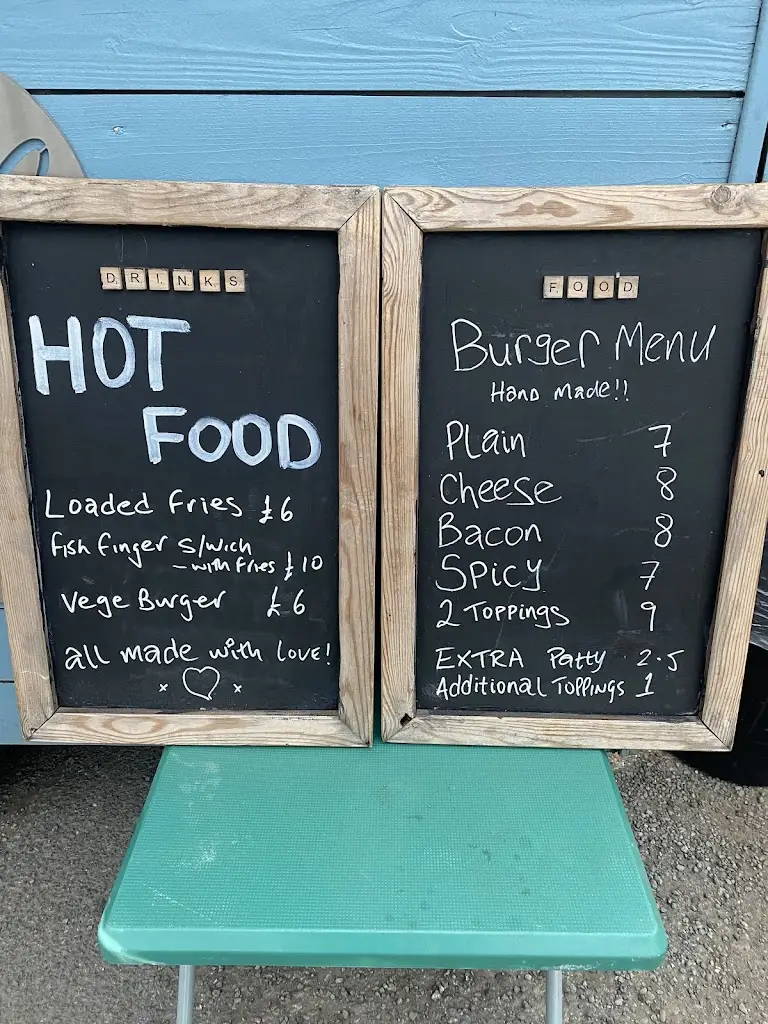 DRINKS
HOT
FOOD
Loaded Fries £6
fish finger s/wich
- with fries £10
Vege Burger £6
all made with love!
x ♡ x
FOOD
Burger Menu
Hand Made!!
Plain 7
Cheese 8
Bacon 8
Spicy 7
2 Toppings 9
EXTRA Patty 2.5
Additional Toppings 1